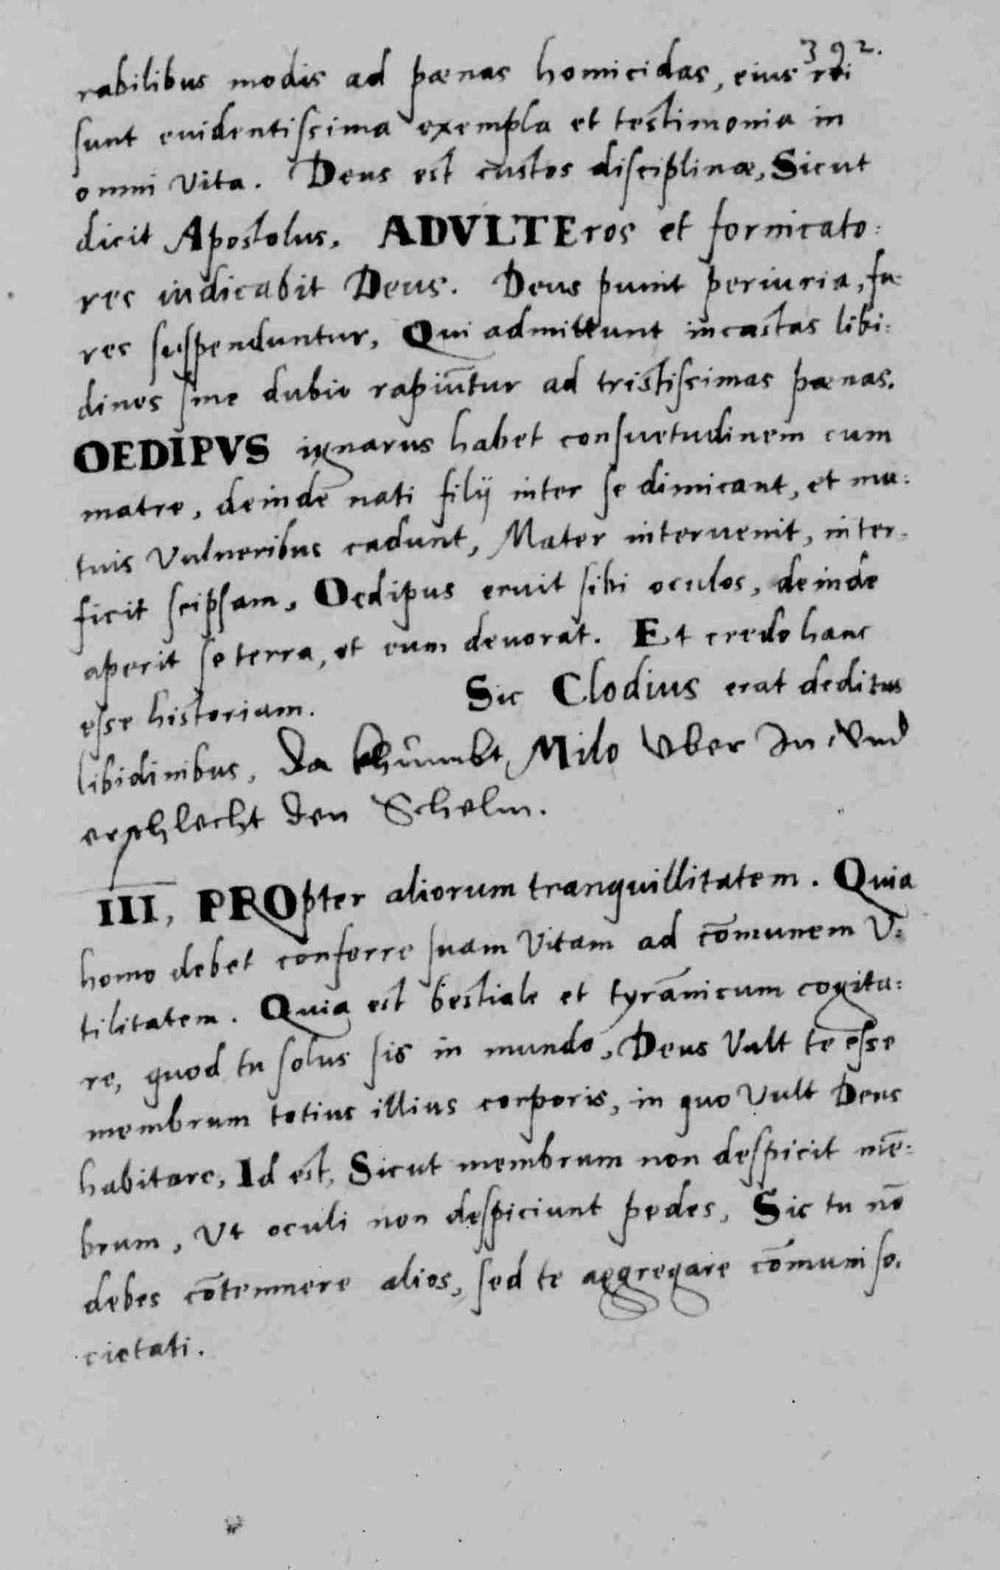 392.
rabilibus modis ad pænas homicidas, eius rei
sunt euidentissima exempla et testimonia in
omni vita. Deus est custos disciplinæ, Sicut
dicit Apostolus, ADVLTEros et fornicato:
res iudicabit Deus. Deus punit periuria, fu:
res suspenduntur, Qui admittunt incastas libi:
dines sine dubio rapiūntur ad tristissimas pænas.
OEDIPVS ignarus habet consuetudinem cum
matre, deinde nati filij inter se dimicant, et mu:
tuis Vulneribus cadunt, Mater interuenit, inter:
ficit seipsam, Oedipus eruit sibi oculos, deinde
aperit se terra, et eum deuorat. Et credo hanc
esse historiam. Sic Clodius erat deditus
libidinibus, Da khumbt Milo Vber In, Vnd
erschlecht den Schelm.
III, PROpter aliorum tranquillitatem. Quia
homo debet conferre suam Vitam ad cōmunem V:
tilitatem. Quia est bestiale et tyrānicum cogita:
re, quod tu solus sis in mundo, Deus Vult te esse
membrum totius illius corporis, in quo Vult Deus
habitare, Id est, Sicut membrum non despicit mē:
brum, Vt oculi non despiciunt pedes, Sic tu nō
debes cōtemnere alios, sed te aggregare cōmuni so.
cietati.